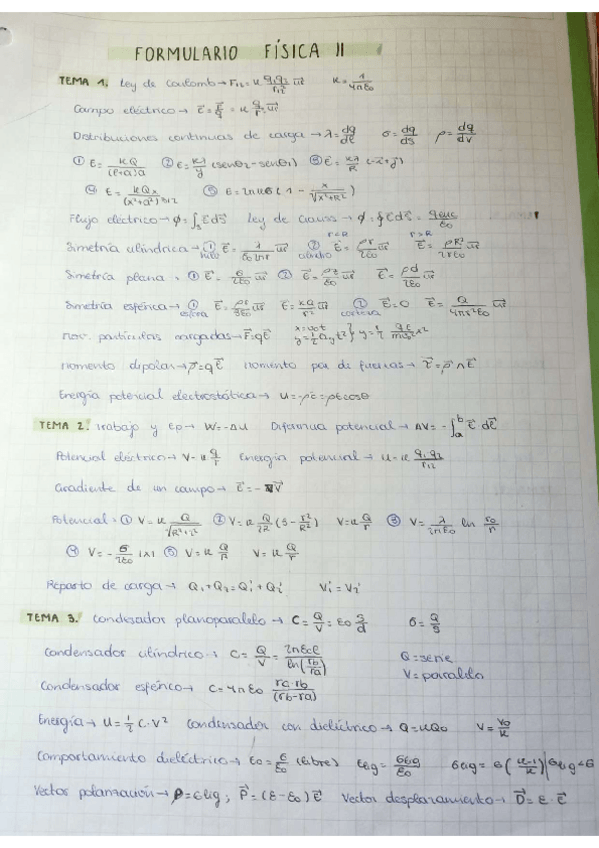 FORMULARIO FÍSICA II
TEMA 1. Ley de Coulomb → F₁₂ = k q₁q₂/r₁₂² u⃗r k = 1/4πε₀
Campo eléctrico → E⃗ = F⃗/q = k q/r² u⃗r
Distribuciones continuas de carga → λ = dq/dl σ = dq/ds ρ = dq/dv
① E = kQ/(l+a)a ② E = kλ/y (senθ₂ - senθ₁) ③ E⃗ = kλ/R (-i⃗+j⃗)
④ E = kQx/(x²+a²)^3/2 ⑤ E = 2πkσ (1 - x/√(x²+R²))
Flujo eléctrico → φ = ∫s E⃗ds⃗ Ley de Gauss → φ = ∮ E⃗ds⃗ = qenc/ε₀
r<R r>R
Simetría cilíndrica → ① hilo E⃗ = λ/ε₀2πr u⃗r ② cilindro E⃗ = ρr/2ε₀ u⃗r E⃗ = ρR²/2rε₀ u⃗r
Simetría plana → ① E⃗ = σ/2ε₀ u⃗r ② E⃗ = ρz/ε₀ u⃗r E⃗ = ρd/2ε₀ u⃗r
Simetría esférica → ① esfera E⃗ = ρr/3ε₀ u⃗r E⃗ = kQ/r² u⃗r ② corteza E = 0 E⃗ = Q/4πr²ε₀ u⃗r
Mov. partículas cargadas → F⃗ = qE⃗ x = v₀t y = ½ayt² } y = ½ qE/mv₀² x²
Momento dipolar → p⃗ = qE⃗ momento par de fuerzas → τ⃗ = p⃗ ∧ E⃗
Energía potencial electrostática → U = -p⃗E⃗ = pEcosθ
TEMA 2. Trabajo y Ep → W = -ΔU Diferencia potencial → ΔV = -∫ₐᵇ E⃗ · dl⃗
Potencial eléctrico → V = k q/r Energía potencial → U = k q₁q₂/r₁₂
Gradiente de un campo → E⃗ = -∇V
Potencial: ① V = k Q/√(R²+z²) ② V = k Q/2R (3 - r²/R²) V = k Q/r ③ V = λ/2πε₀ ln r₀/r
④ V = -σ/2ε₀ |x| ⑤ V = k Q/R V = k Q/r
Reparto de carga → Q₁ + Q₂ = Q₁' + Q₂' V₁' = V₂'
TEMA 3. Condesador planoparalelo → C = Q/V = ε₀ S/d σ = Q/S
Condensador cilíndrico → C = Q/V = 2πε₀l/ln(rb/ra) Q = serie
V = paralelo
Condensador esférico → C = 4πε₀ ra·rb/(rb-ra)
Energía → U = ½ C·V² Condensador con dieléctrico → Q = kQ₀ V = V₀/k
Comportamiento dieléctrico → E₀ = σ/ε₀ (libre) Elig = σlig/ε₀ σlig = σ(k-1/k) | σlig < σ
Vector polarización → P = σlig ; P⃗ = (ε-ε₀)E⃗ Vector desplazamiento → D⃗ = ε · E⃗